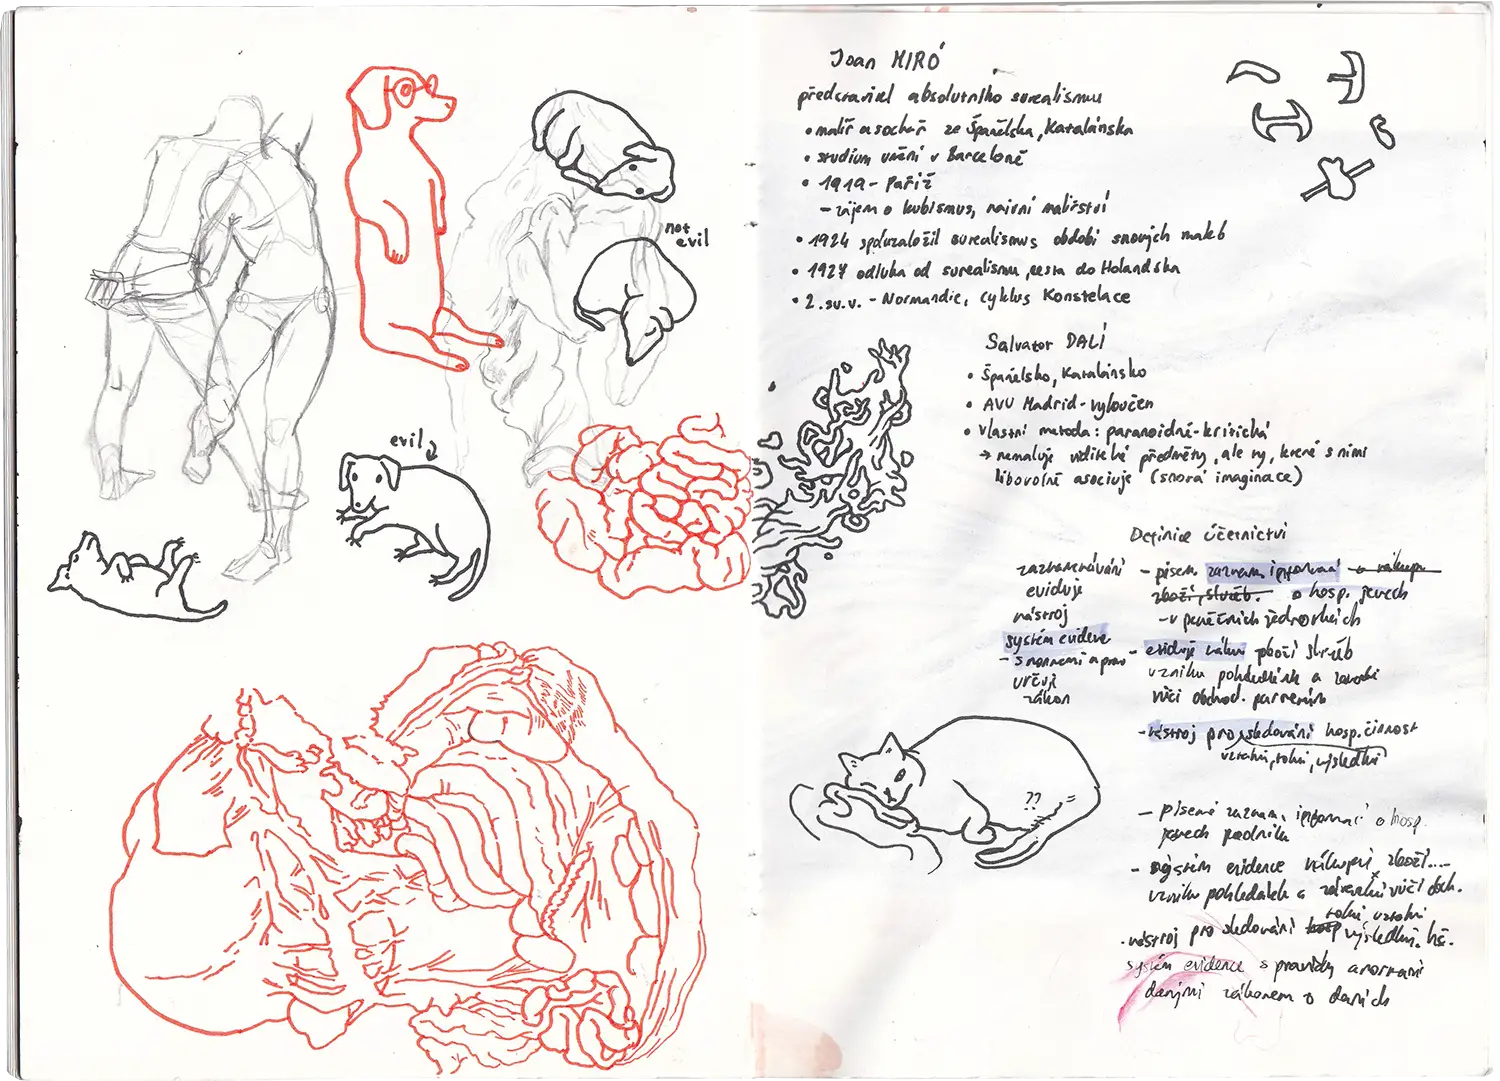 not
evil
evil
Joan MIRÓ
představitel absolutního surealismu
• malíř a sochař ze Španělska, Katalánska
• studium umění v Barceloně
• 1919 - Paříž
- zájem o kubismus, naivní malířství
• 1924 spoluzaložil surealismus období snových maleb
• 1927 odluka od surealismu, cesta do Holandska
• 2.sv.v. - Normandie, cyklus Konstelace
Salvator DALÍ
• Španělsko, Katalánsko
• AVU Madrid - vyloučen
• vlastní metoda: paranoidně-kritická
→ nemaluje viditelné předměty, ale ty, které s nimi
libovolně asociuje (snová imaginace)
Definice účetnictví
zaznamenávání
eviduje
nástroj
systém evidence
- s normami a prav
určuji
zákon
- písem. záznam informací → nákup
zboží, služeb. o hosp. jevech
- v peněžních jednotkách
- eviduje nákup zboží služeb
vzniku pohledávek a závazků
vůči obchod. partnerům
- nástroj pro sledování hosp. činnost
ztrátu, výsledků
??
- písemé záznam. informací o hosp.
jevech podniku
- systém evidence nákupení zboží....
vzniku pohledátek a vůči dod.
• nástroj pro sledování hosp výsledku. hč.
systém evidence s pravidly a normami
danými zákonem o daních